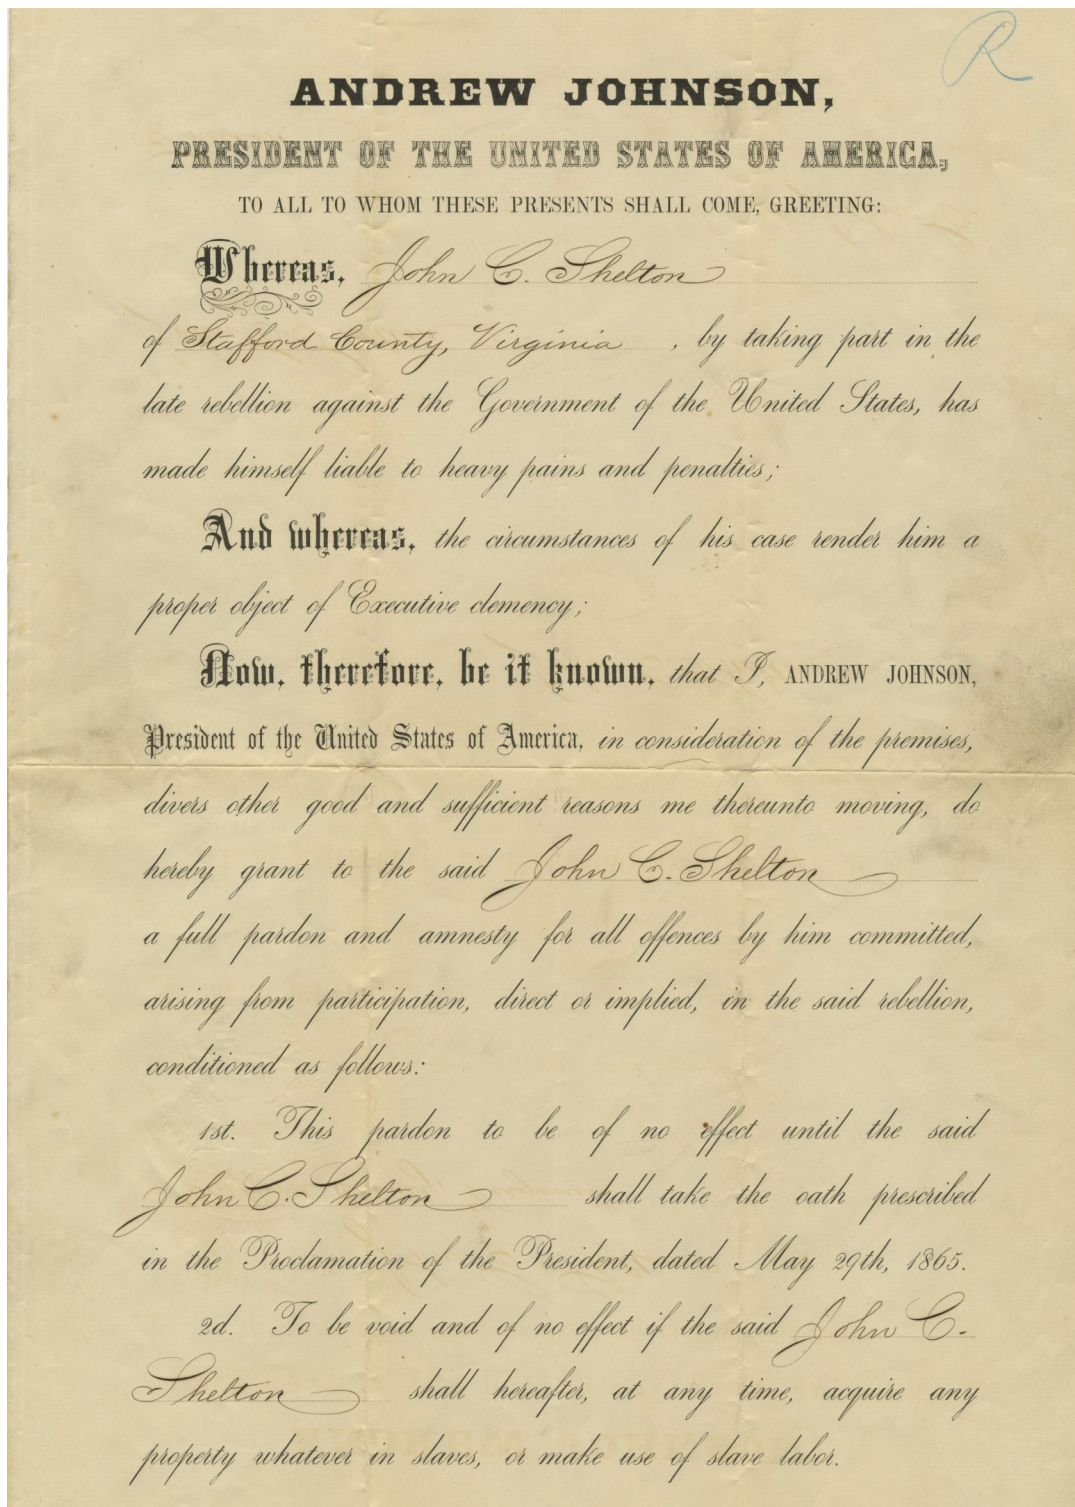 R
ANDREW JOHNSON,
PRESIDENT OF THE UNITED STATES OF AMERICA,
TO ALL TO WHOM THESE PRESENTS SHALL COME, GREETING:
Whereas, John C. Shelton
of Stafford County, Virginia , by taking part in the
late rebellion against the Government of the United States, has
made himself liable to heavy pains and penalties;
And whereas, the circumstances of his case render him a
proper object of Executive clemency;
Now, therefore, be it known, that I, ANDREW JOHNSON,
President of the United States of America, in consideration of the premises,
divers other good and sufficient reasons me thereunto moving, do
hereby grant to the said John C. Shelton
a full pardon and amnesty for all offences by him committed,
arising from participation, direct or implied, in the said rebellion,
conditioned as follows:
1st. This pardon to be of no effect until the said
John C. Shelton shall take the oath prescribed
in the Proclamation of the President, dated May 29th, 1865.
2d. To be void and of no effect if the said John C.
Shelton shall hereafter, at any time, acquire any
property whatever in slaves, or make use of slave labor.